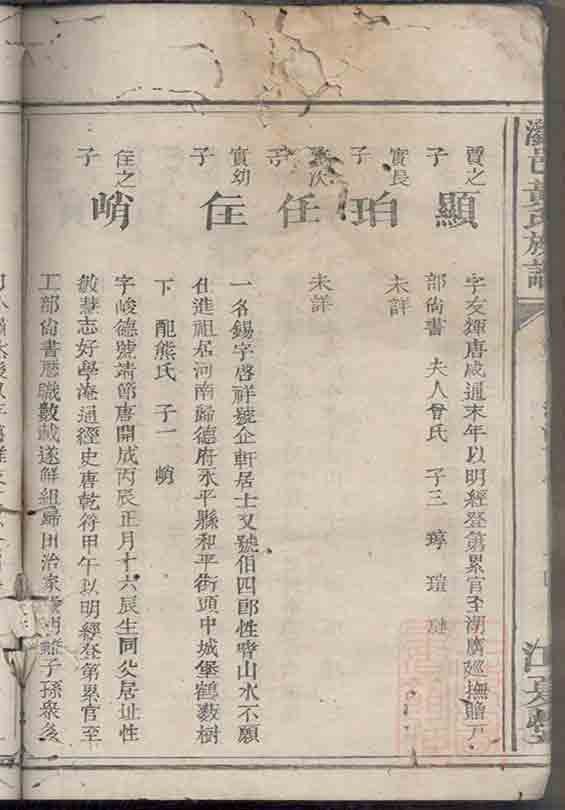 邑黃氏族譜
江夏堂
賈之子
顯
字友輝唐咸通末年以明經登第累官至湖廣廵撫贈戶
部尚書 夫人曾氏 子三 瑋 瑄
實長子
珀
未詳
次子
任
未詳
實幼子
隹
一名錫字啓祥號企軒居士又號伯四郎性嗜山水不願
仕進祖居河南歸德府永平縣和平街頭中城堡鶴藪樹
下 配熊氏 子一 峭
隹之子
峭
字峻德號靖節唐開成丙辰正月十六辰生同父居址性
敏慧志好學淹通經史唐乾符甲午以明經登第累官至
工部尚書歷職數載遂解組歸田治家 子孫衆後